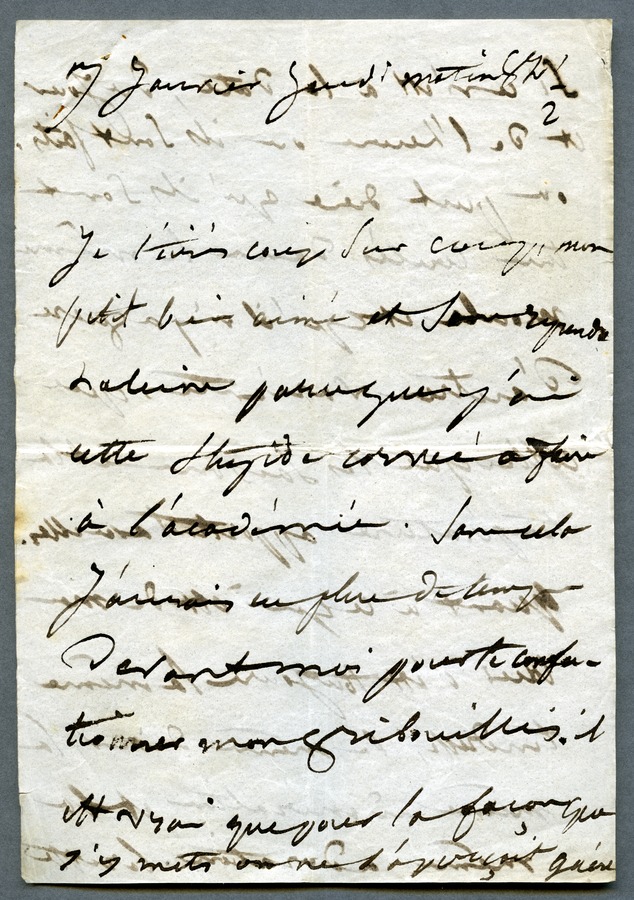 7 Janvier Jeudi matin 8h ½
Je t'écris coup sur coup, mon
petit bien aimé et sans reprendre
haleine parceque j'ai
cette stupide corvée à faire
à l'académie. Sans cela
J'aurais eu plus de temps
Devant moi pour te confec-
tionner mon gribouillis. il
est vrai que pour la façon que
j'y mets on ne s'aperçoit guère